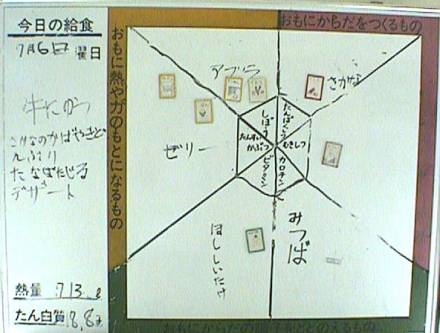 今日の給食
7月6日 曜日
牛にゅう
さかなのかばやきどんぶり
たなばたじる
デザート
熱量 713
たん白質
おもに熱や力のもとになるもの
おもにからだをつくるもの
アブラ
さかな
ゼリー
みつば
ほししいたけ
しぼう
たんぱくしつ
たんすいかぶつ
むきしつ
ビタミン
カロチン